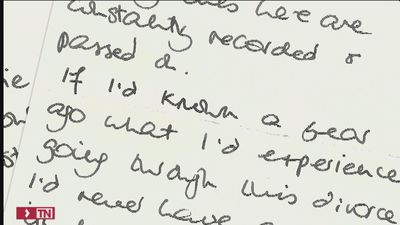 here are
constantly recorded &
passed on.
If I'd known a year
ago what I'd experience
going through this divorce
I'd never have
TN